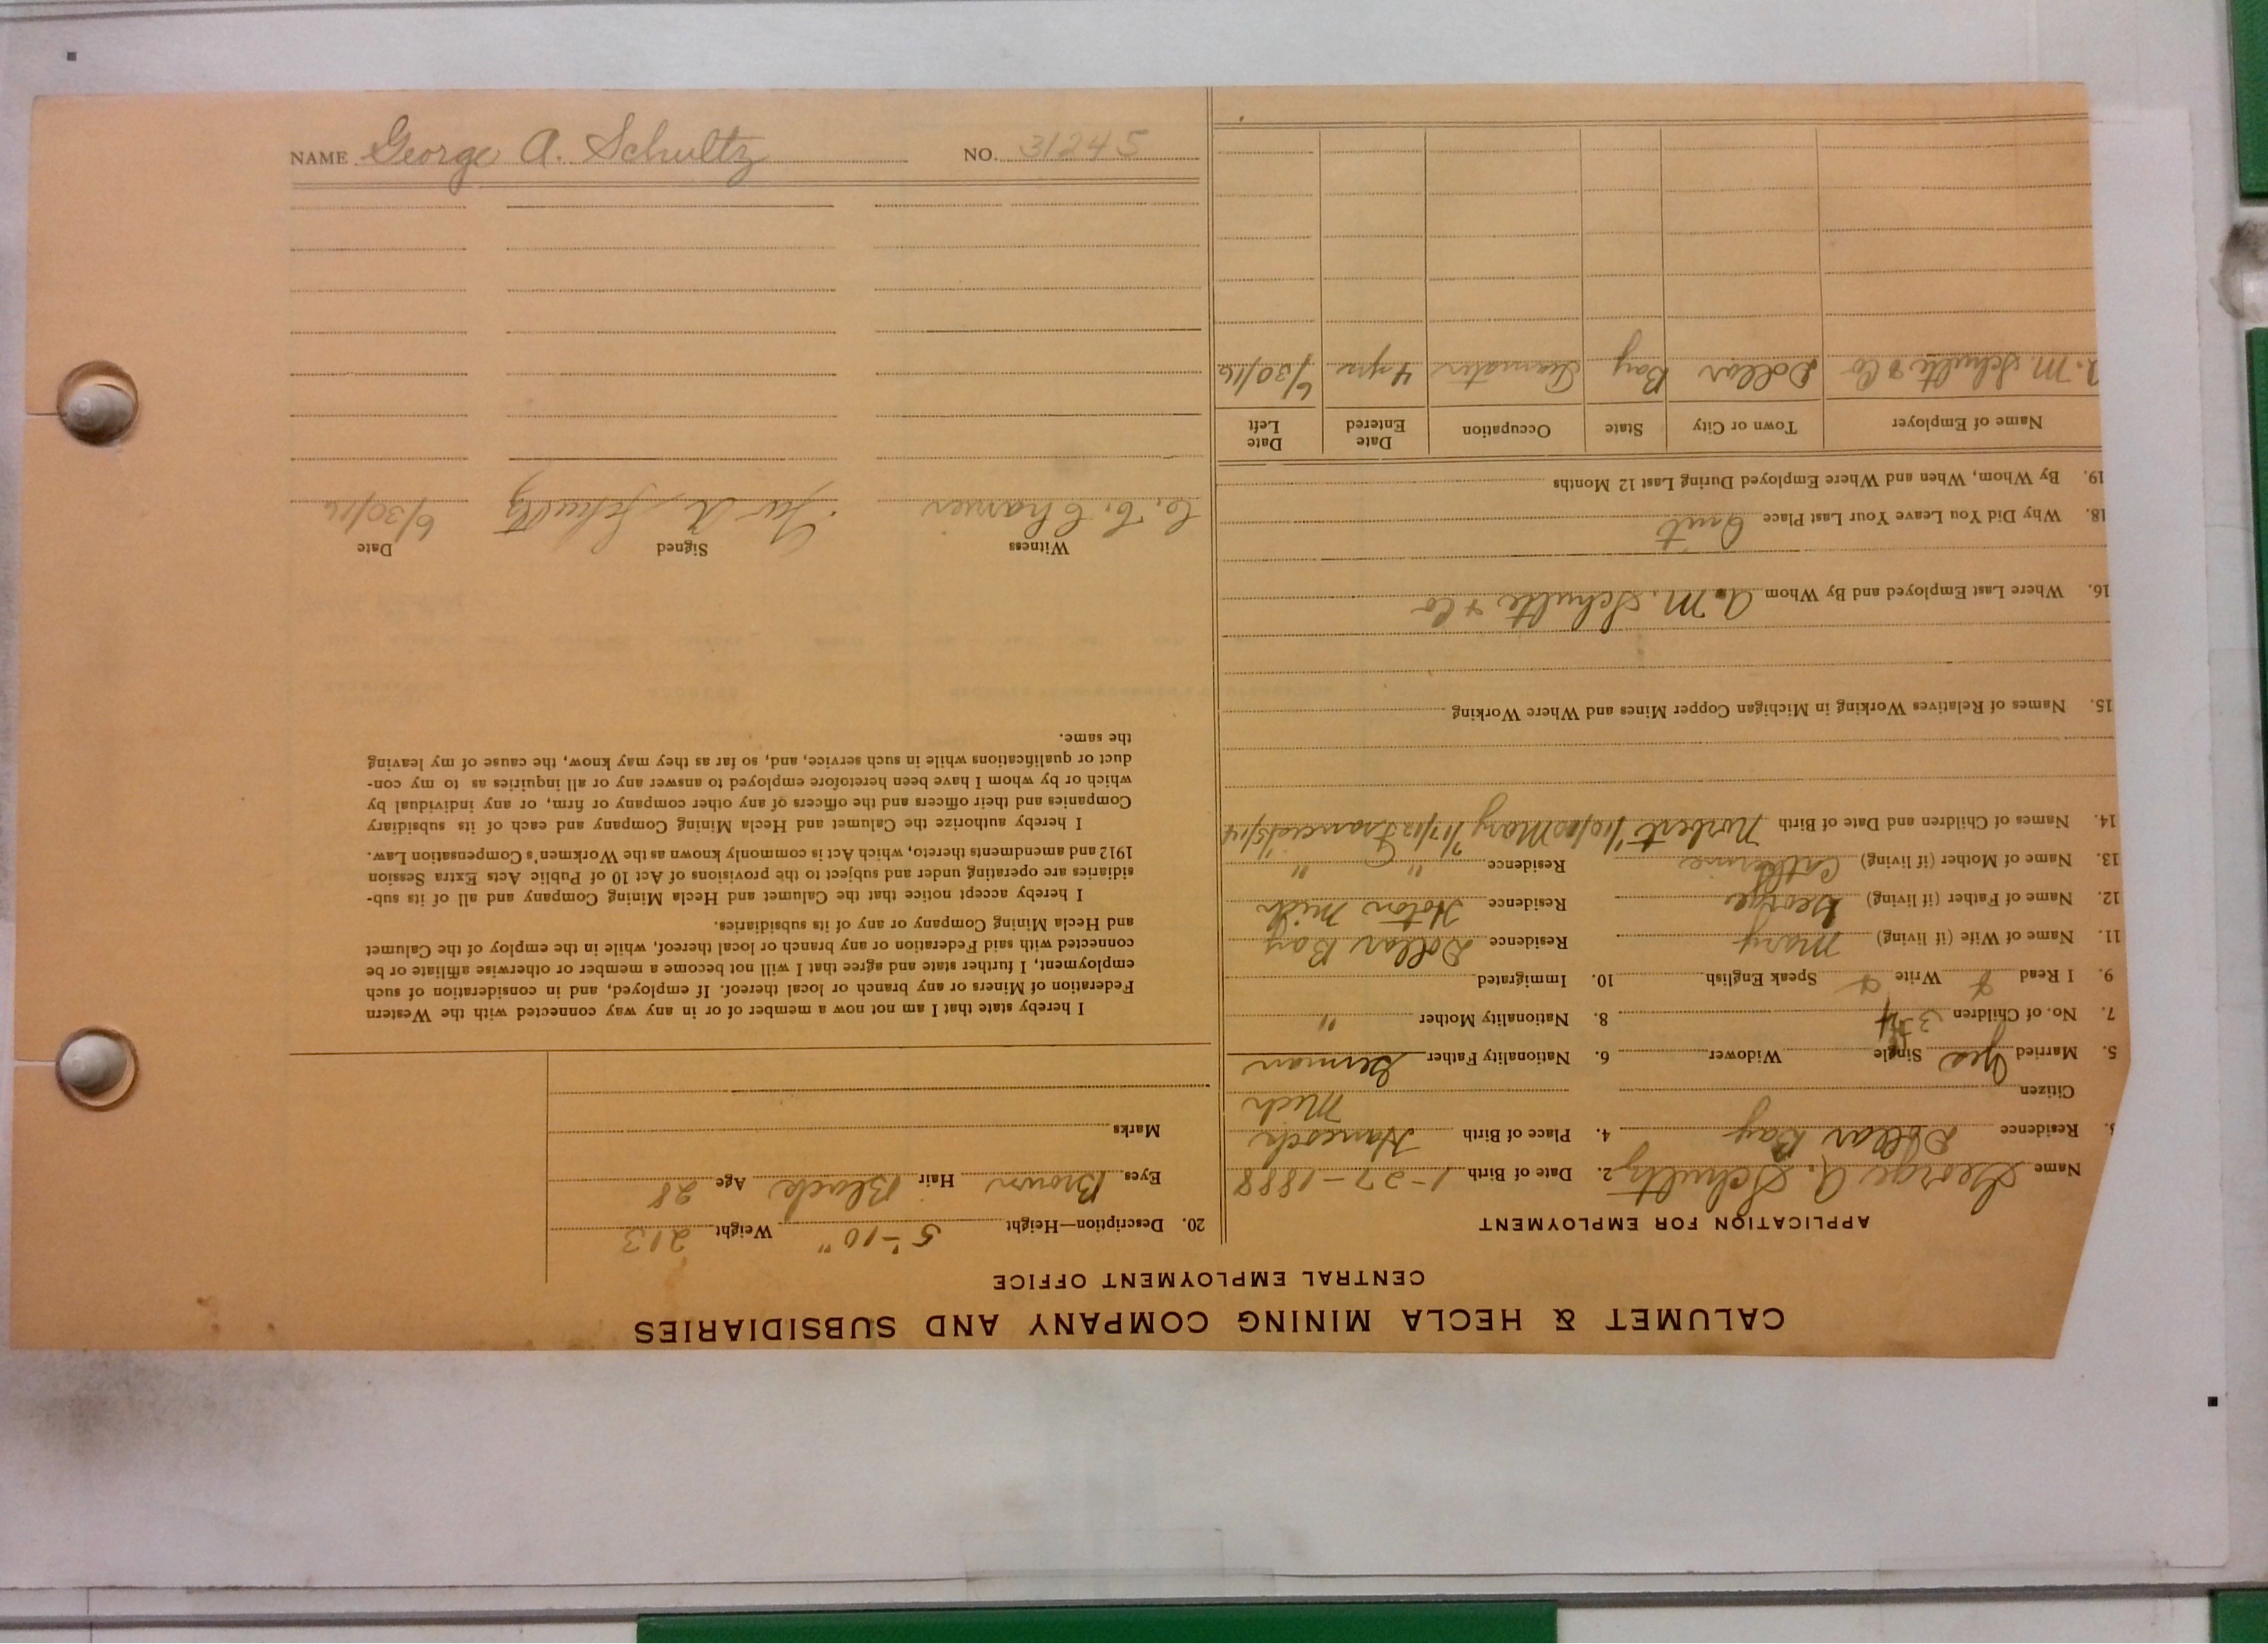 CALUMET & HECLA MINING COMPANY AND SUBSIDIARIES
CENTRAL EMPLOYMENT OFFICE
APPLICATION FOR EMPLOYMENT
Name George A. Schultz 2. Date of Birth 1-27-1888
3. Residence Dollar Bay 4. Place of Birth Hancock
Citizen Mich
5. Married Yes Single Widower 6. Nationality Father German
7. No. of Children 3 4 8. Nationality Mother "
9. I Read Write Speak English 10. Immigrated
11. Name of Wife (if living) Mary Residence Dollar Bay
12. Name of Father (if living) George Residence Hoton Mich
13. Name of Mother (if living) Catherine Residence " "
14. Names of Children and Date of Birth Norbert Mary 7/17/12 Francis
15. Names of Relatives Working in Michigan Copper Mines and Where Working
16. Where Last Employed and By Whom A. M. Schulte & Co
18. Why Did You Leave Your Last Place Quit
19. By Whom, When and Where Employed During Last 12 Months
Name of Employer Town or City State Occupation Date Entered Date Left
A. M. Schulte & Co Dollar Bay Teamster 4 yrs 6/30/16
20. Description—Height 5'-10" Weight 213
Eyes Brown Hair Black Age 28
Marks
I hereby state that I am not now a member of or in any way connected with the Western
Federation of Miners or any branch or local thereof. If employed, and in consideration of such
employment, I further state and agree that I will not become a member or otherwise affiliate or be
connected with said Federation or any branch or local thereof, while in the employ of the Calumet
and Hecla Mining Company or any of its subsidiaries.
I hereby accept notice that the Calumet and Hecla Mining Company and all of its sub-
sidiaries are operating under and subject to the provisions of Act 10 of Public Acts Extra Session
1912 and amendments thereto, which Act is commonly known as the Workmen's Compensation Law.
I hereby authorize the Calumet and Hecla Mining Company and each of its subsidiary
Companies and their officers and the officers of any other company or firm, or any individual by
which or by whom I have been heretofore employed to answer any or all inquiries as to my con-
duct or qualifications while in such service, and, so far as they may know, the cause of my leaving
the same.
Witness Signed Date
Geo A Schultz 6/30/16
NAME George A. Schultz NO. 31245